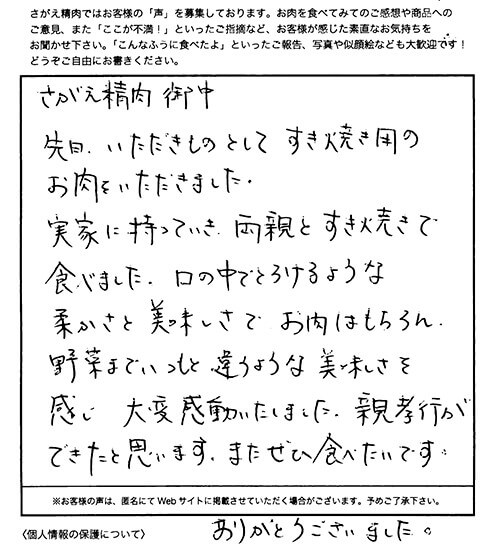 さがえ精肉ではお客様の「声」を募集しております。お肉を食べてみてのご感想や商品への
ご意見、また「ここが不満！」といったご指摘など、お客様が感じた素直なお気持ちを
お聞かせ下さい。「こんなふうに食べたよ」といったご報告、写真や似顔絵なども大歓迎です！
どうぞご自由にお書きください。
さがえ精肉 御中
先日、いただきものとして すき焼き用の
お肉をいただきました。
実家に持っていき、両親とすき焼きで
食べました。口の中でとろけるような
柔かさと美味しさで お肉はもちろん、
野菜までいつもと違うような美味しさを
感じ 大変感動いたしました。親孝行が
できたと思います。またぜひ食べたいです。
※お客様の声は、匿名にてWebサイトに掲載させていただく場合がございます。予めご了承下さい。
〈個人情報の保護について〉
ありがとうございました。